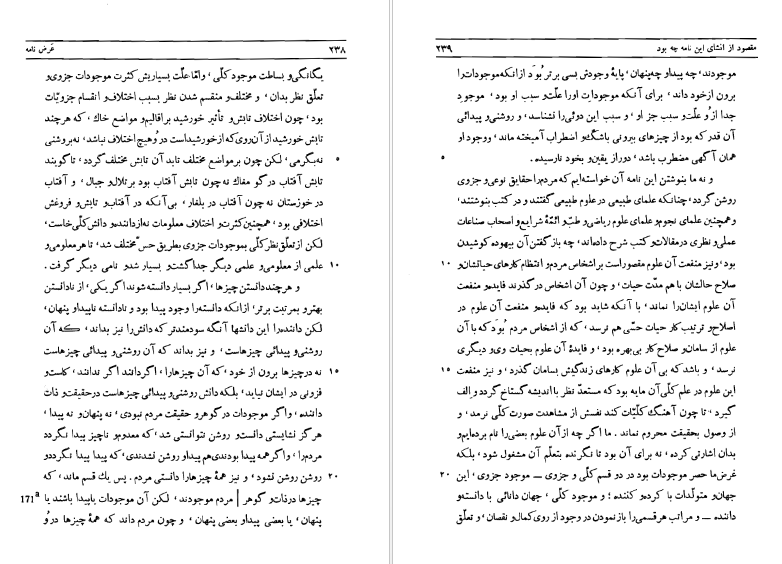 ۲۳۸
عَرَض نامه
یگانگی و بساطت موجود کلّی، و امّا علّت بسیاریش کثرت موجودات جزوی و
تعلّق نظر بدان، و مختلف و منقسم شدن نظر بسبب اختلاف و انقسام جزویّات
بود، چون اختلاف تابش و تأثیر خورشید بر اقالیم و مواضع خاك، که هرچند
تابش خورشید از آن روی که از خورشید است در وُ هیچ اختلاف نباشد، نه بروشنی
۵ نه بگرمی، لکن چون بر مواضع مختلف تابد آن تابش مختلف گردد، تا گویند
تابش آفتاب در گو مغاك نه چون تابش آفتاب بود بر تلال و جبال، و آفتاب
در خوزستان نه چون آفتاب در بلغار، بی آنکه در آفتاب و تابش و فروغش
اختلافی بود، همچنین کثرت و اختلاف معلومات نه از داننده و دانش کلّی خاست،
لکن از تعلّق نظر کلّی بموجودات جزوی بطریق حسّ مختلف شد، تا هر معلومی و
۱۰ علمی از معلومی و علمی دیگر جدا گشت و بسیار شد و نامی دیگر گرفت.
و هرچند دانستن چیزها، اگر بسیار دانسته شوند اگر یکی، از نادانستن
بهتر و بمرتبت برتر، از آنکه دانسته را وجود پیدا بود و نادانسته ناپیدا و پنهان،
لکن داننده را این دانشها آنگه سودمندتر که دانش را نیز بداند، که آن
روشنی و پیدائی چیزهاست، و نیز بداند که آن روشنی و پیدائی چیزهاست
۱۵ نه در چیزها برون از خود، که آن چیزها را، اگر دانند اگر ندانند، کاست و
فزونی در ایشان نیاید، بلکه دانش روشنی و پیدائی چیزهاست در حقیقت و ذات
داننده، و اگر موجودات در گوهر و حقیقت مردم نبودی، نه پنهان و نه پیدا،
هرگز نشایستی دانست و روشن نتوانستی شد، که معدوم و ناچیز پیدا نگردد
مردم را، و اگر همه پیدا بودندی هم پیدا و روشن نشدندی، که پیدا پیدا نگردد و
۲۰ روشن روشن نشود، و نیز همهٔ چیزها را دانستی مردم. پس یك قسم ماند، که
چیزها در ذات و گوهر | مردم موجودند، لکن آن موجودات یا پیدا باشند یا 171a
پنهان، یا بعضی پیدا و بعضی پنهان، و چون مردم داند که همهٔ چیزها در وُ
مقصود از انشای این نامه چه بود
۲۳۹
موجودند، چه پیدا و چه پنهان، پایهٔ وجودش بسی برتر بُوَد از آنکه موجودات را
برون از خود داند، برای آنکه موجودات او را علّت و سبب او بود، موجود
جدا از وُ علّت و سبب جز او، و سبب این دوئی را نشناسد، و روشنی و پیدائی
آن قدر که بود از چیزهای بیرونی با شكّ و اضطراب آمیخته ماند، و وجود او
۵ همان آگهی مضطرب باشد، دور از یقین و بخود نارسیده.
و نه ما بنوشتن این نامه آن خواسته‌ایم که مردم را حقایق نوعی و جزوی
روشن گردد، چنانکه علمای طبیعی در علوم طبیعی گفتند و در کتب بنوشتند،
و همچنین علمای نجوم و علمای علوم ریاضی و طبّ و ائمّهٔ شرایع و اصحاب صناعات
عملی و نظری در مقالات و کتب شرح داده‌اند، چه باز گفتن آن بیهوده کوشیدن
۱۰ بود، و نیز منفعت آن علوم مقصور است بر اشخاص مردم و انتظام کارهای حیاتشان و
صلاح حالشان با هم مدّت حیات، و چون آن اشخاص در گذرند فایده و منفعت
آن علوم ایشان را نماند، با آنکه شاید بود که فایده و منفعت آن علوم در
اصلاح و ترتیب کار حیات حسّی هم نرسد، که از اشخاص مردم بُوَد که با آن
علوم از سامان و صلاح کار بی بهره بود، و فایدهٔ آن علوم بحیات وی و دیگری
۱۵ نرسد، و باشد که بی آن علوم کارهای زندگیش بسامان گذرد، و نیز منفعت
این علوم در علم کلّی آن مایه بود که مستعدّ نظر با اندیشه گستاخ گردد و الف
گیرد، تا چون آهنگ کلّیّات کند نفسش از مشاهدت صورت کلّی نرمد، و
از وصول بحقیقت محروم نماند. ما اگر چه از آن علوم بعضی را نام برده‌ایم و
بدان اشارتی کرده، نه برای آن بود تا نگرنده بتعلّم آن مشغول شود، بلکه
۲۰ غرض ما حصر موجودات بود در دو قسم کلّی و جزوی ــ موجود جزوی، این
جهان و متولّدات با کرده و کننده؛ و موجود کلّی، جهان دانائی با دانسته و
داننده ــ و مراتب هر قسمی را باز نمودن در وجود از روی کمال و نقصان، و تعلّق